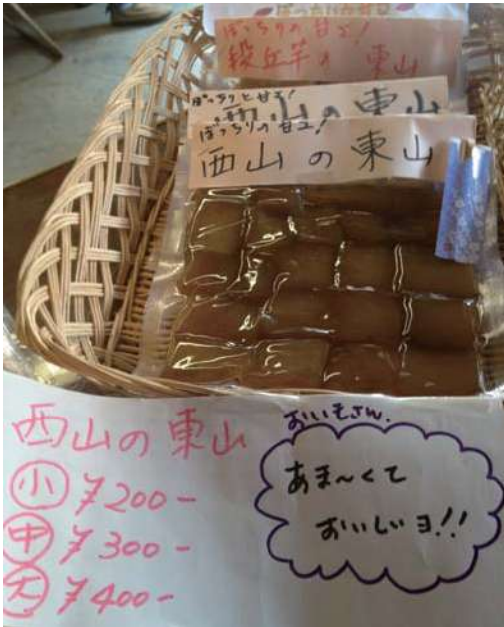 ぼっちりの甘さ!
段丘芋の 東山
ぼっちりと甘え!
西山の東山
ぼっちりの甘さ!
西山の東山
西山の東山
小 ¥200-
中 ¥300-
大 ¥400-
おいもさん.
あま〜くて
おいしいヨ!!